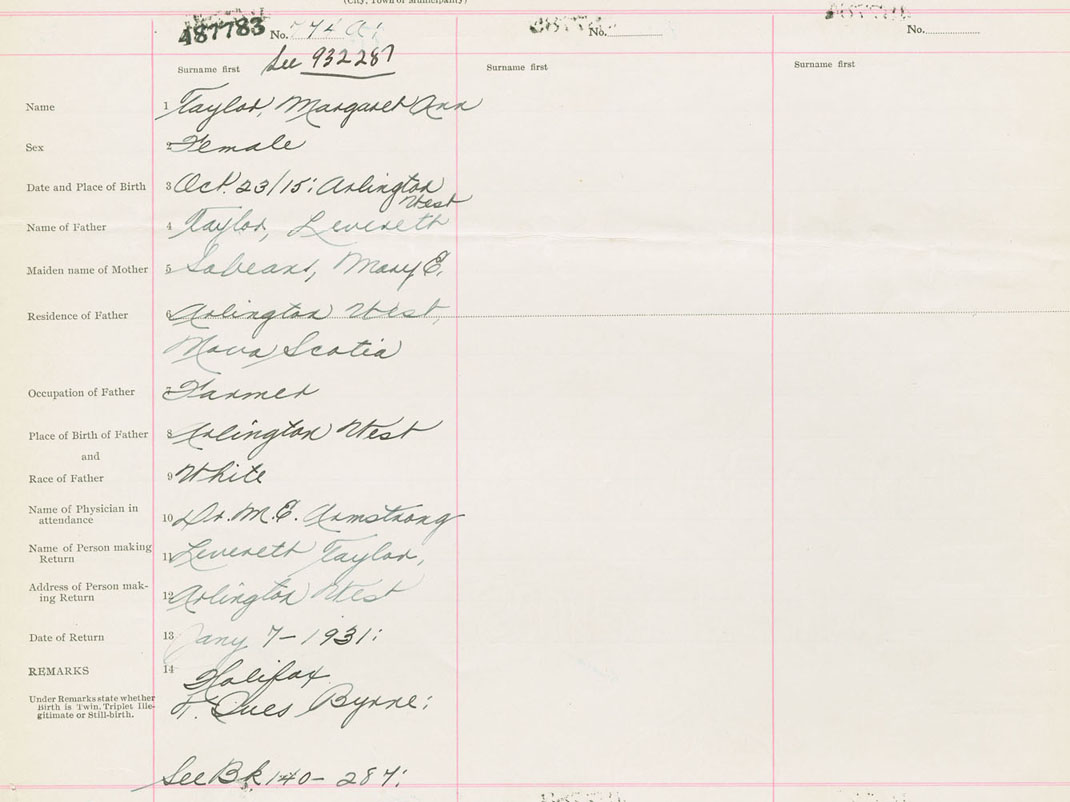 (City, Town or Municipality)
487783 No. No. No.
See 932287
Surname first Surname first Surname first
Name 1 Taylor, Margaret Ann
Sex 2 Female
Date and Place of Birth 3 Oct. 23/15: Arlington
West
Name of Father 4 Taylor, Levereth
Maiden name of Mother 5 Sabeans, Mary E.
Residence of Father 6 Arlington West,
Nova Scotia
Occupation of Father 7 Farmer
Place of Birth of Father 8 Arlington West
and
Race of Father 9 White
Name of Physician in
attendance 10 Dr. M. E. Armstrong
Name of Person making
Return 11 Levereth Taylor,
Address of Person mak-
ing Return 12 Arlington West
Date of Return 13 Jany 7 - 1931:
REMARKS 14 Halifax
Under Remarks state whether
Birth is Twin, Triplet Ille-
gitimate or Still-birth.
Byrne:
See Bk 140 - 287: